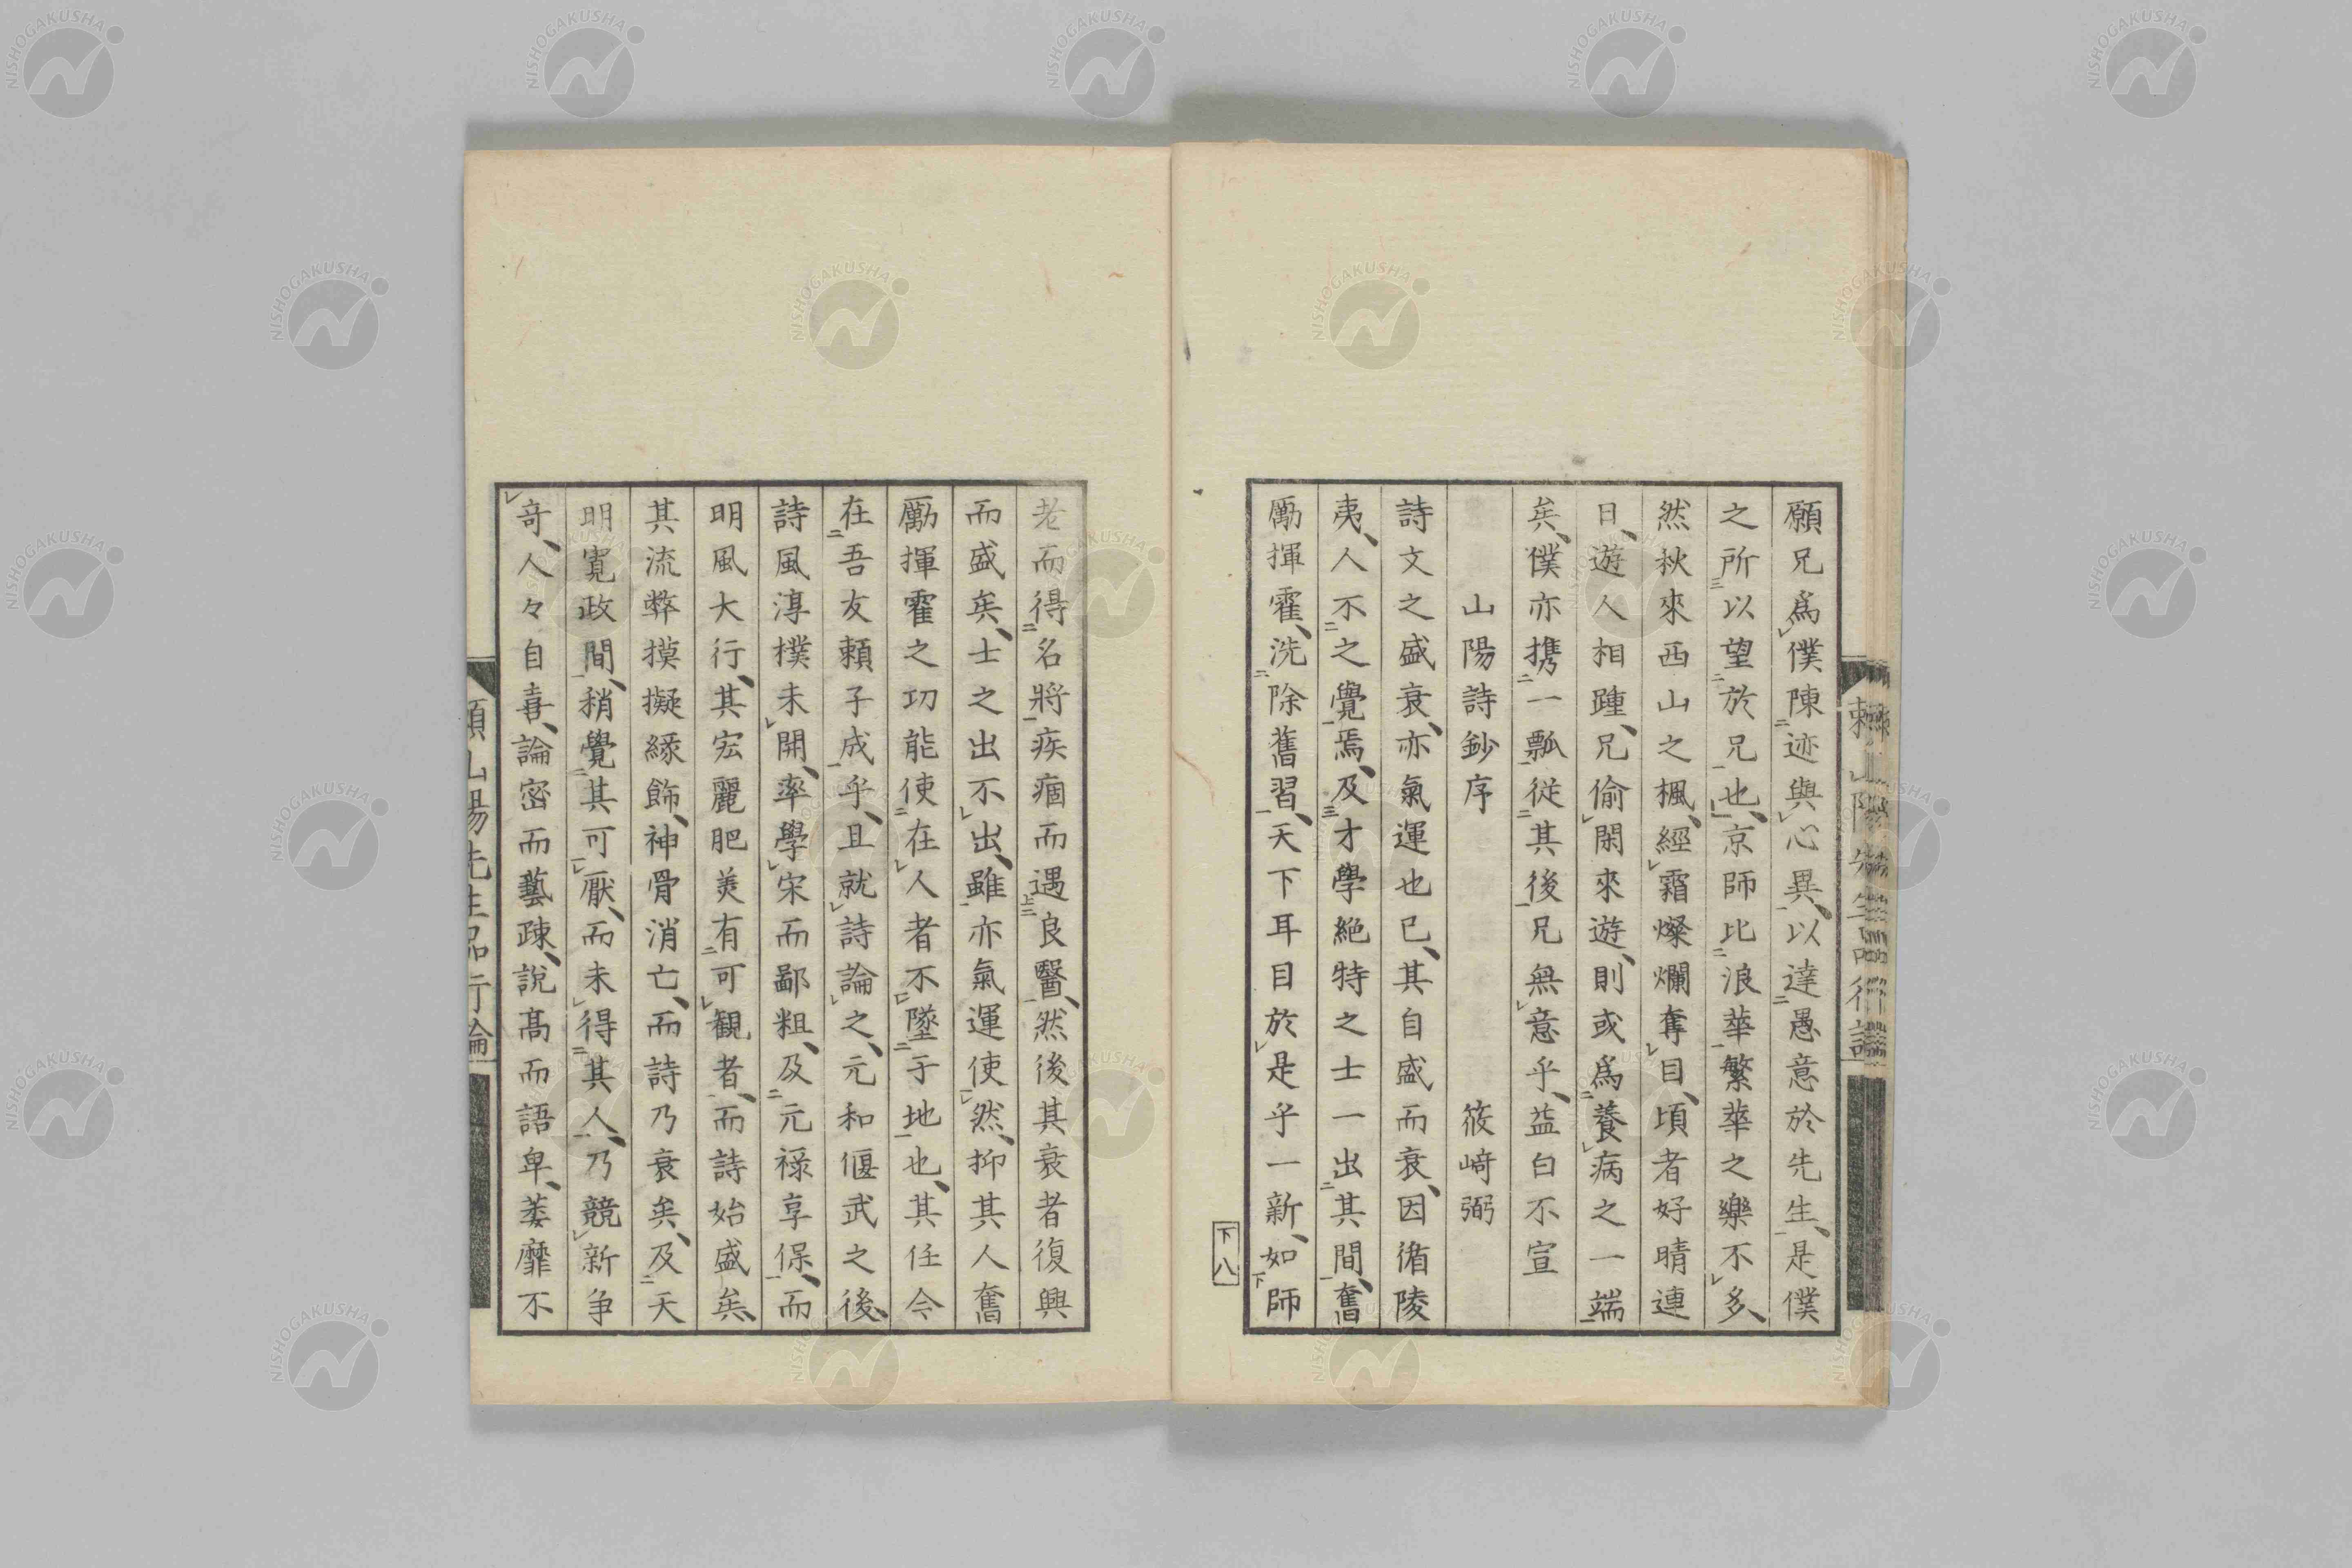 願兄爲僕陳迹與心異、以達愚意於先生、是僕
之所以望於兄也、京師比浪華繁華之樂不多、
然秋來西山之楓、經霜燦爛奪目、頃者好晴連
日、遊人相踵、兄偷閑來遊、則或爲養病之一端
矣、僕亦携一瓢從其後、兄無意乎、益白不宣
山陽詩鈔序　筱﨑弼
詩文之盛衰、亦氣運也已、其自盛而衰、因循陵
夷、人不之覺焉、及才學絶特之士一出其間、奮
勵揮霍、洗除舊習、天下耳目於是乎一新、如師
下八
老而得名將疾痼而遇良醫、然後其衰者復興
而盛矣、士之出不出、雖亦氣運使然、抑其人奮
勵揮霍之功能使在人者不墜于地也、其任今
在吾友頼子成乎、且就詩論之、元和偃武之後、
詩風淳樸未開、率學宋而鄙粗、及元祿享保、而
明風大行、其宏麗肥美有可觀者、而詩始盛矣、
其流弊摸擬緣飾、神骨消亡、而詩乃衰矣、及天
明寛政間、稍覺其可厭、而未得其人、乃競新争
竒、人々自喜、論密而藝疎、說髙而語卑、萎靡不
頼山陽先生品行論
NISHOGAKUSHA